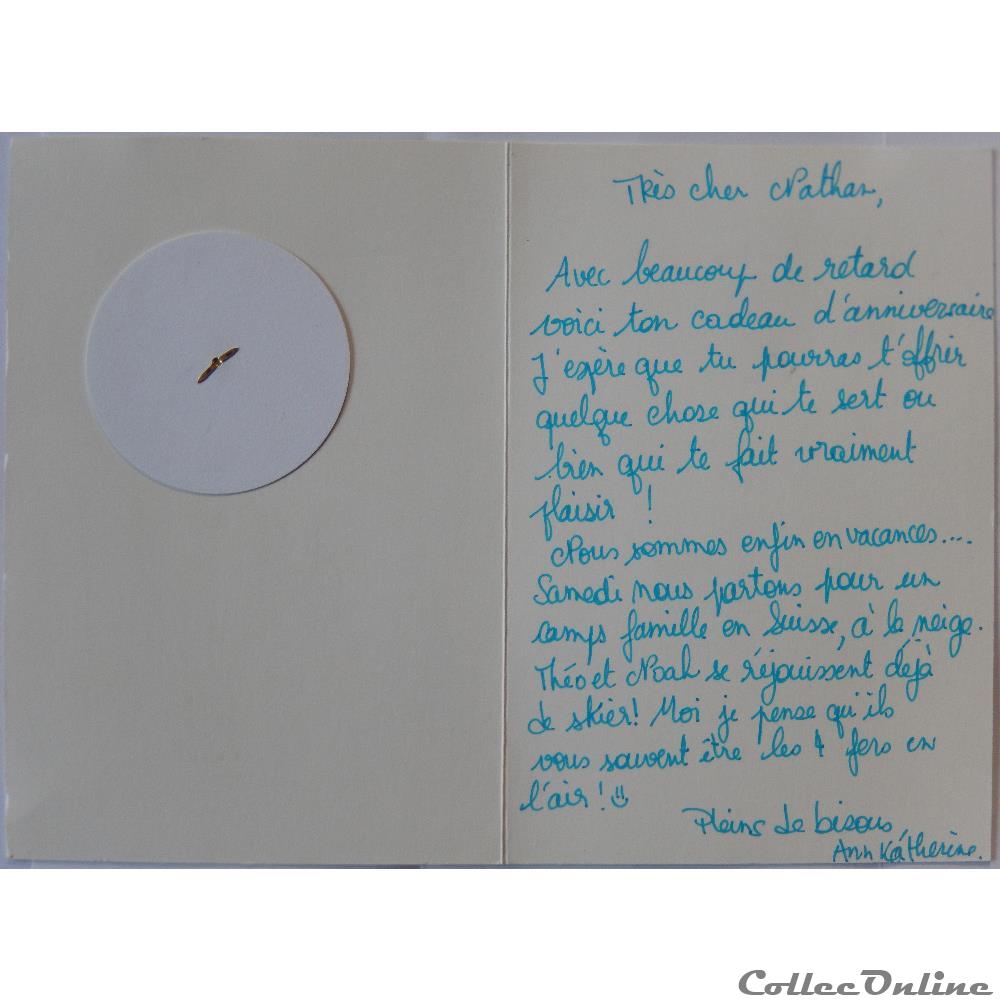 Très cher Nathan,
Avec beaucoup de retard
voici ton cadeau d'anniversaire
J'espère que tu pourras t'offrir
quelque chose qui te sert ou
bien qui te fait vraiment
plaisir !
Nous sommes enfin en vacances....
Samedi nous partons pour un
camps famille en Suisse, à la neige.
Théo et Noah se réjouissent déjà
de skier! Moi je pense qu'ils
vous souvent être les 4 fers en
l'air ! ☺
Pleins de bisous,
Ann Katherine.
CollecOnline